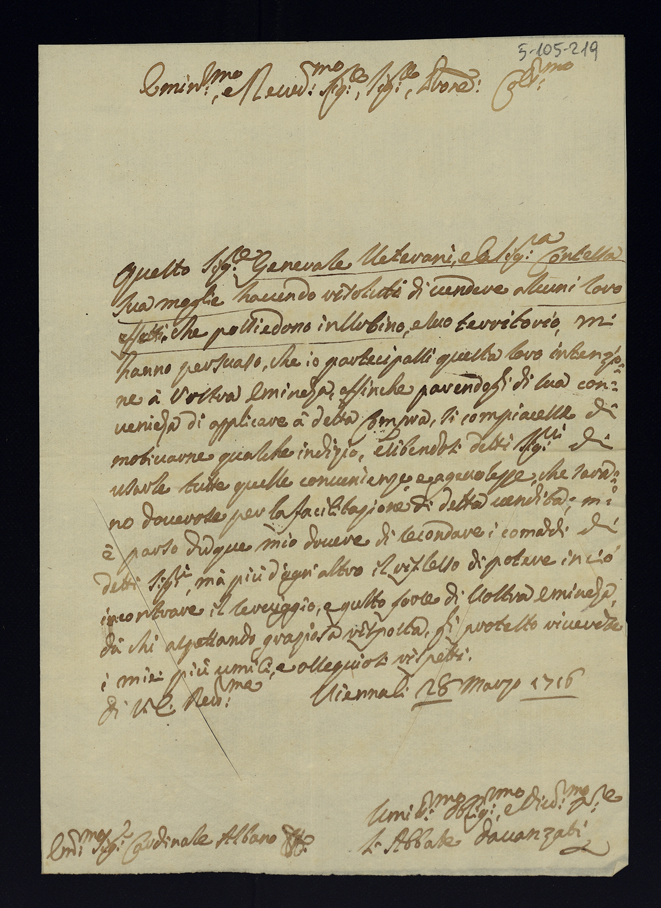 5-105-219
Emin:mo, e Reved:mo Sig:re, Sig:re, Prone: Col:mo
Questo Sig:re Generale Veterani, e la Sig:ra Contessa
sua moglie havendo risoluto di vendere alcuni loro
effetti, che possiedono in Urbino, e suo territorio, mi
hanno persuaso, che io partecipassi questa loro intenzio=
ne à Vostra Eminenza, affinche parendogli di sua con=
venienza di applicare à detta compra, si compiacesse di
motivarne qualche indizio, esibendosi detti Sig:ri di
usarle tutte quelle convenienze, e agevolezze, che saran=
no doverose per la facilitazione di detta vendita; m'
è parso dunque mio dovere di secondare i comandi di
detti Sig:ri, mà più d'ogni altro il riflesso di potere in ciò
incontrare il servaggio, e gusto forse di Vostra Eminenza,
da chi aspettando graziosa risposta, gli protesto riverente
i miei più umili, e ossequiosi rispetti.
di V. E. Rev:ma Vienna li 28 Marzo 1716
Umilis:mo Oblig:mo, e Devot:mo Ser:re
Em:mo Sig:r Cardinale Albano
L'Abbate Davanzati